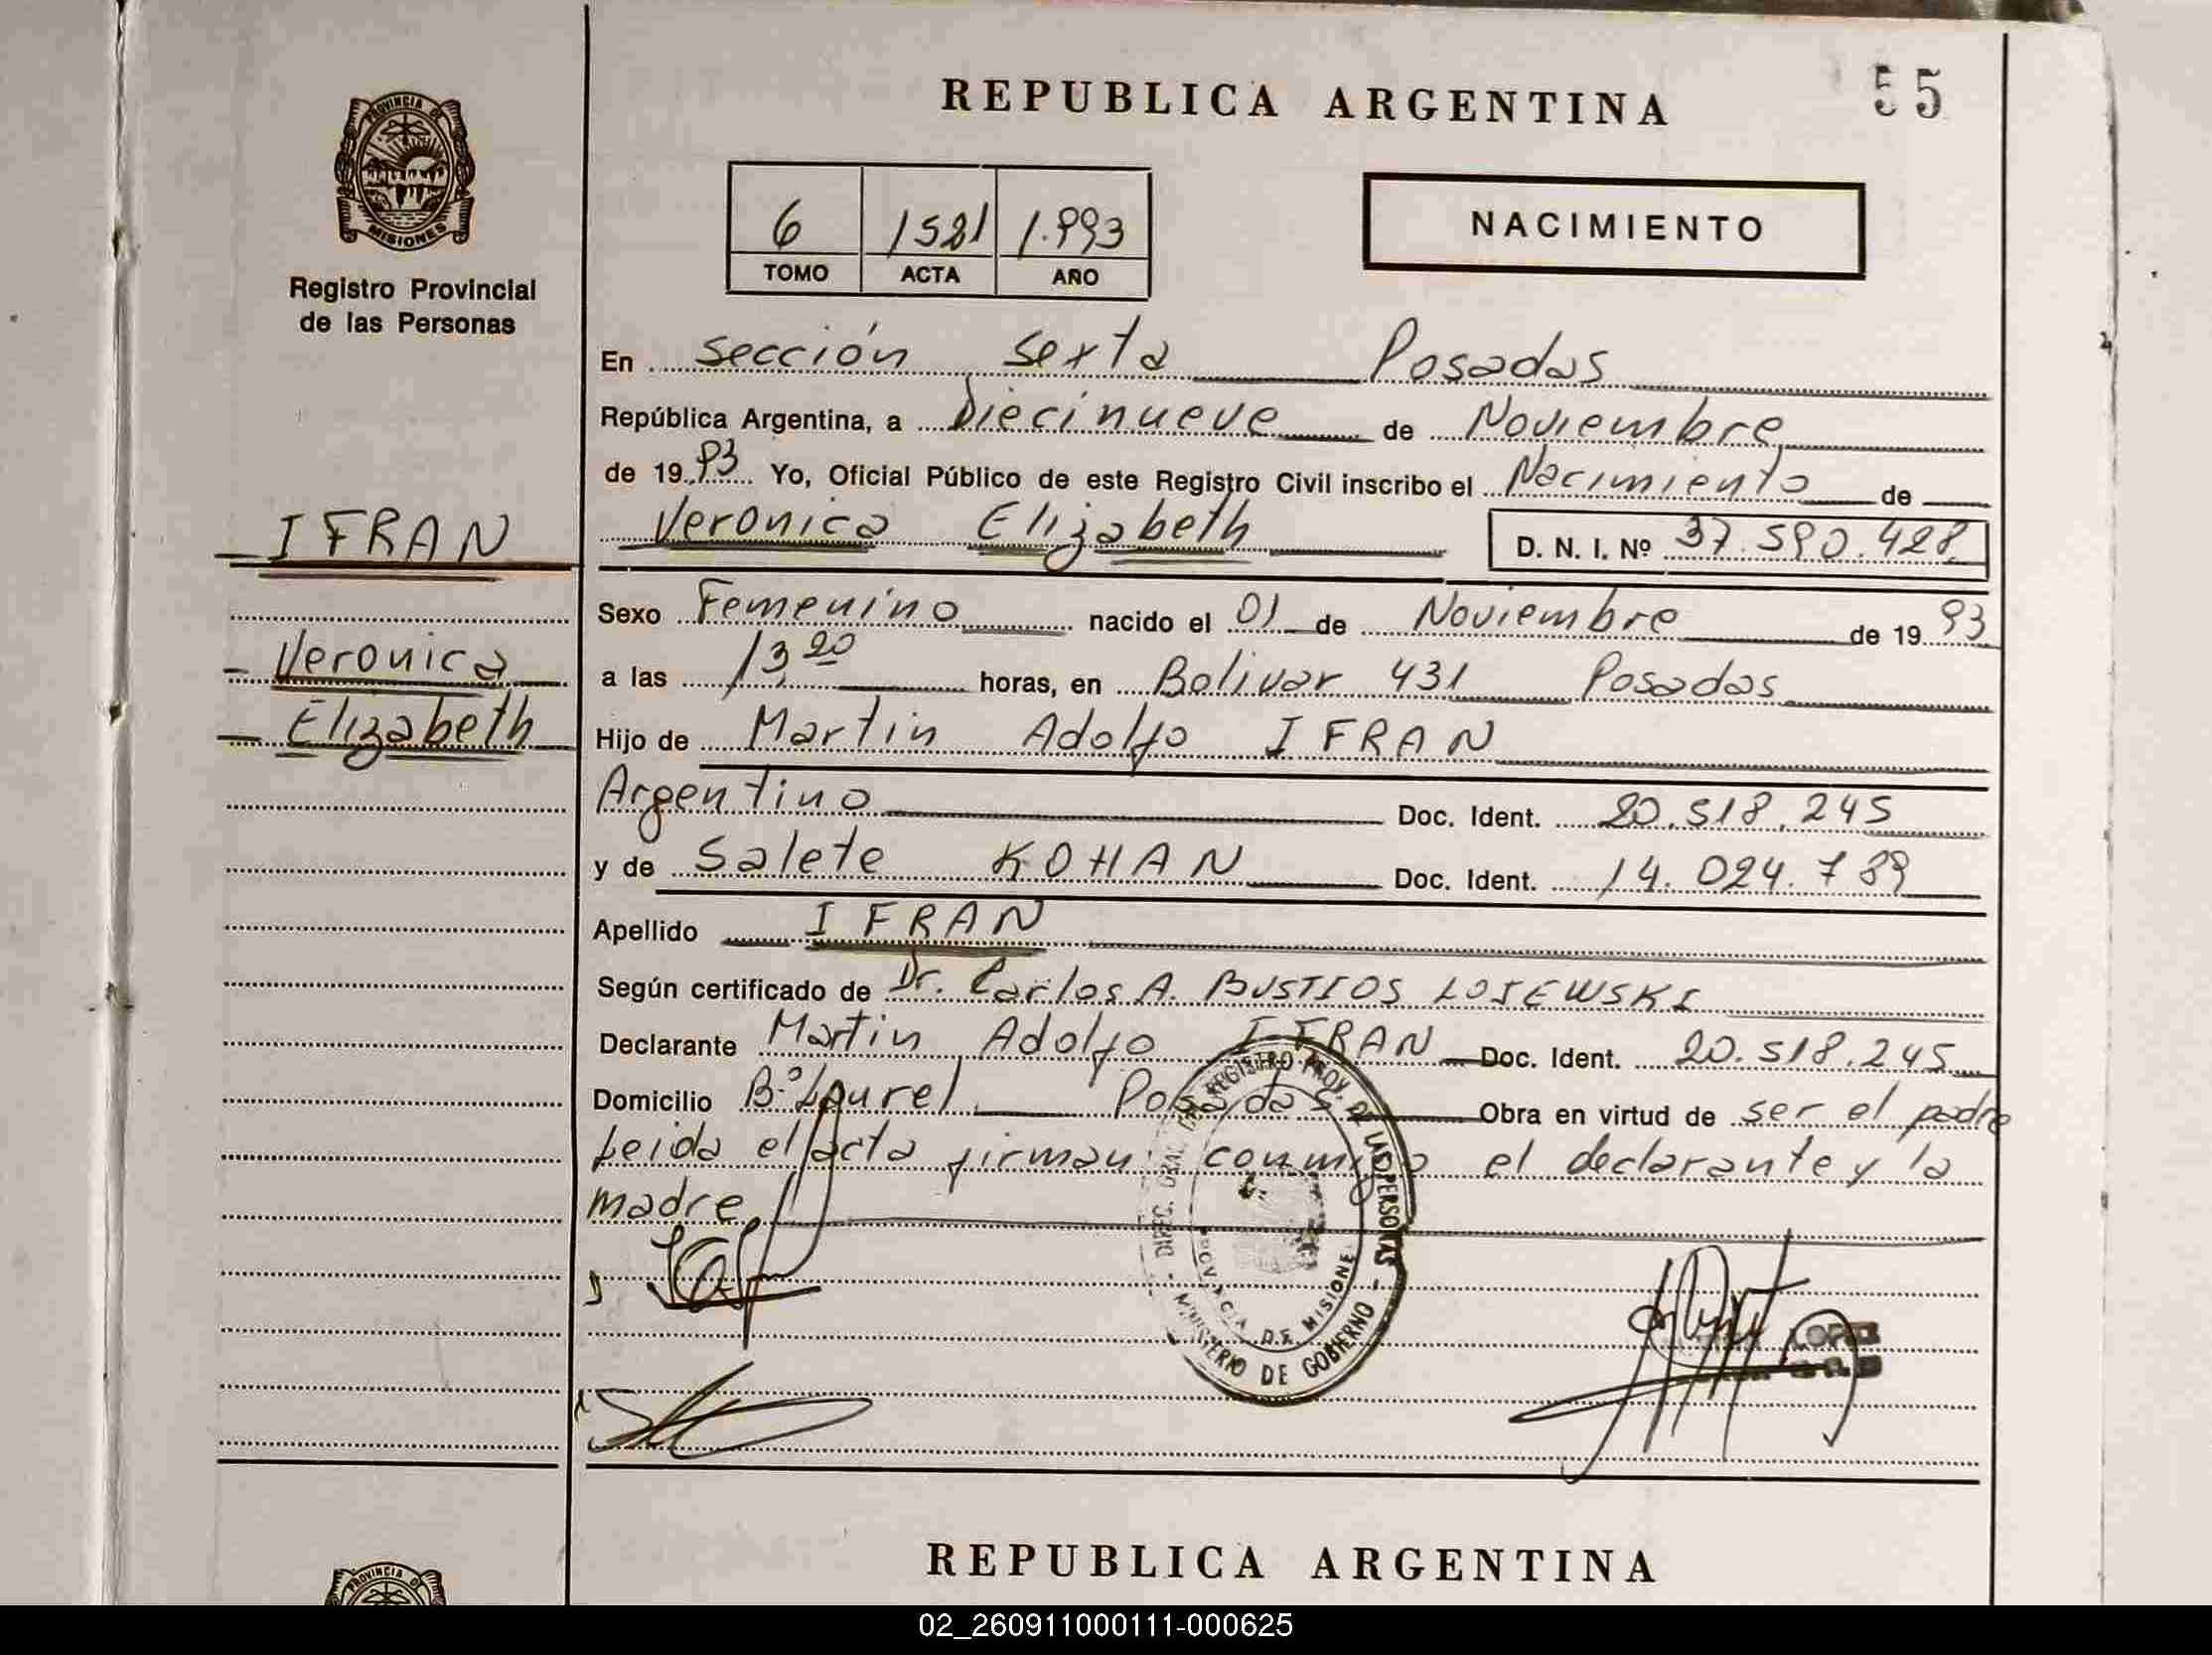 REPUBLICA ARGENTINA
55
PROVINCIA DE
MISIONES
Registro Provincial
de las Personas
6 1581 1.993
TOMO ACTA AÑO
NACIMIENTO
En sección sexta Posadas
República Argentina, a Diecinueve de Noviembre
de 1993 Yo, Oficial Público de este Registro Civil inscribo el Nacimiento de
Veronica Elizabeth D. N. I. Nº 37.590.428
IFRAN
Veronica
Elizabeth
Sexo Femenino nacido el 01 de Noviembre de 1993
a las 13,20 horas, en Bolivar 431 Posadas
Hijo de Martin Adolfo IFRAN
Argentino Doc. Ident. 20.518.245
y de Salete KOHAN Doc. Ident. 14.024.789
Apellido IFRAN
Según certificado de Dr. Carlos A. BUSTIOS LOJEWSKI
Declarante Martin Adolfo IFRAN Doc. Ident. 20.518.245
Domicilio Bº Laurel Posadas Obra en virtud de ser el padre
Leida el acta firman conmigo el declarante y la
madre
DIREC. GRAL. DEL REGISTRO PROV. DE LAS PERSONAS - MINISTERIO DE GOBIERNO -
PROVINCIA DE MISIONES
LOPEZ
REPUBLICA ARGENTINA
PROVINCIA DE
02_260911000111-000625